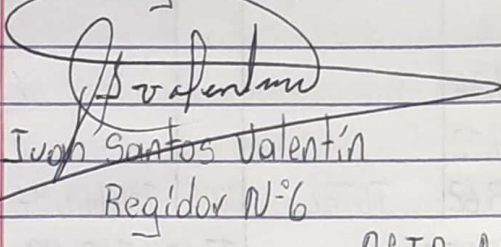 Svalentin
Juan Santos Valentín
Regidor N°6